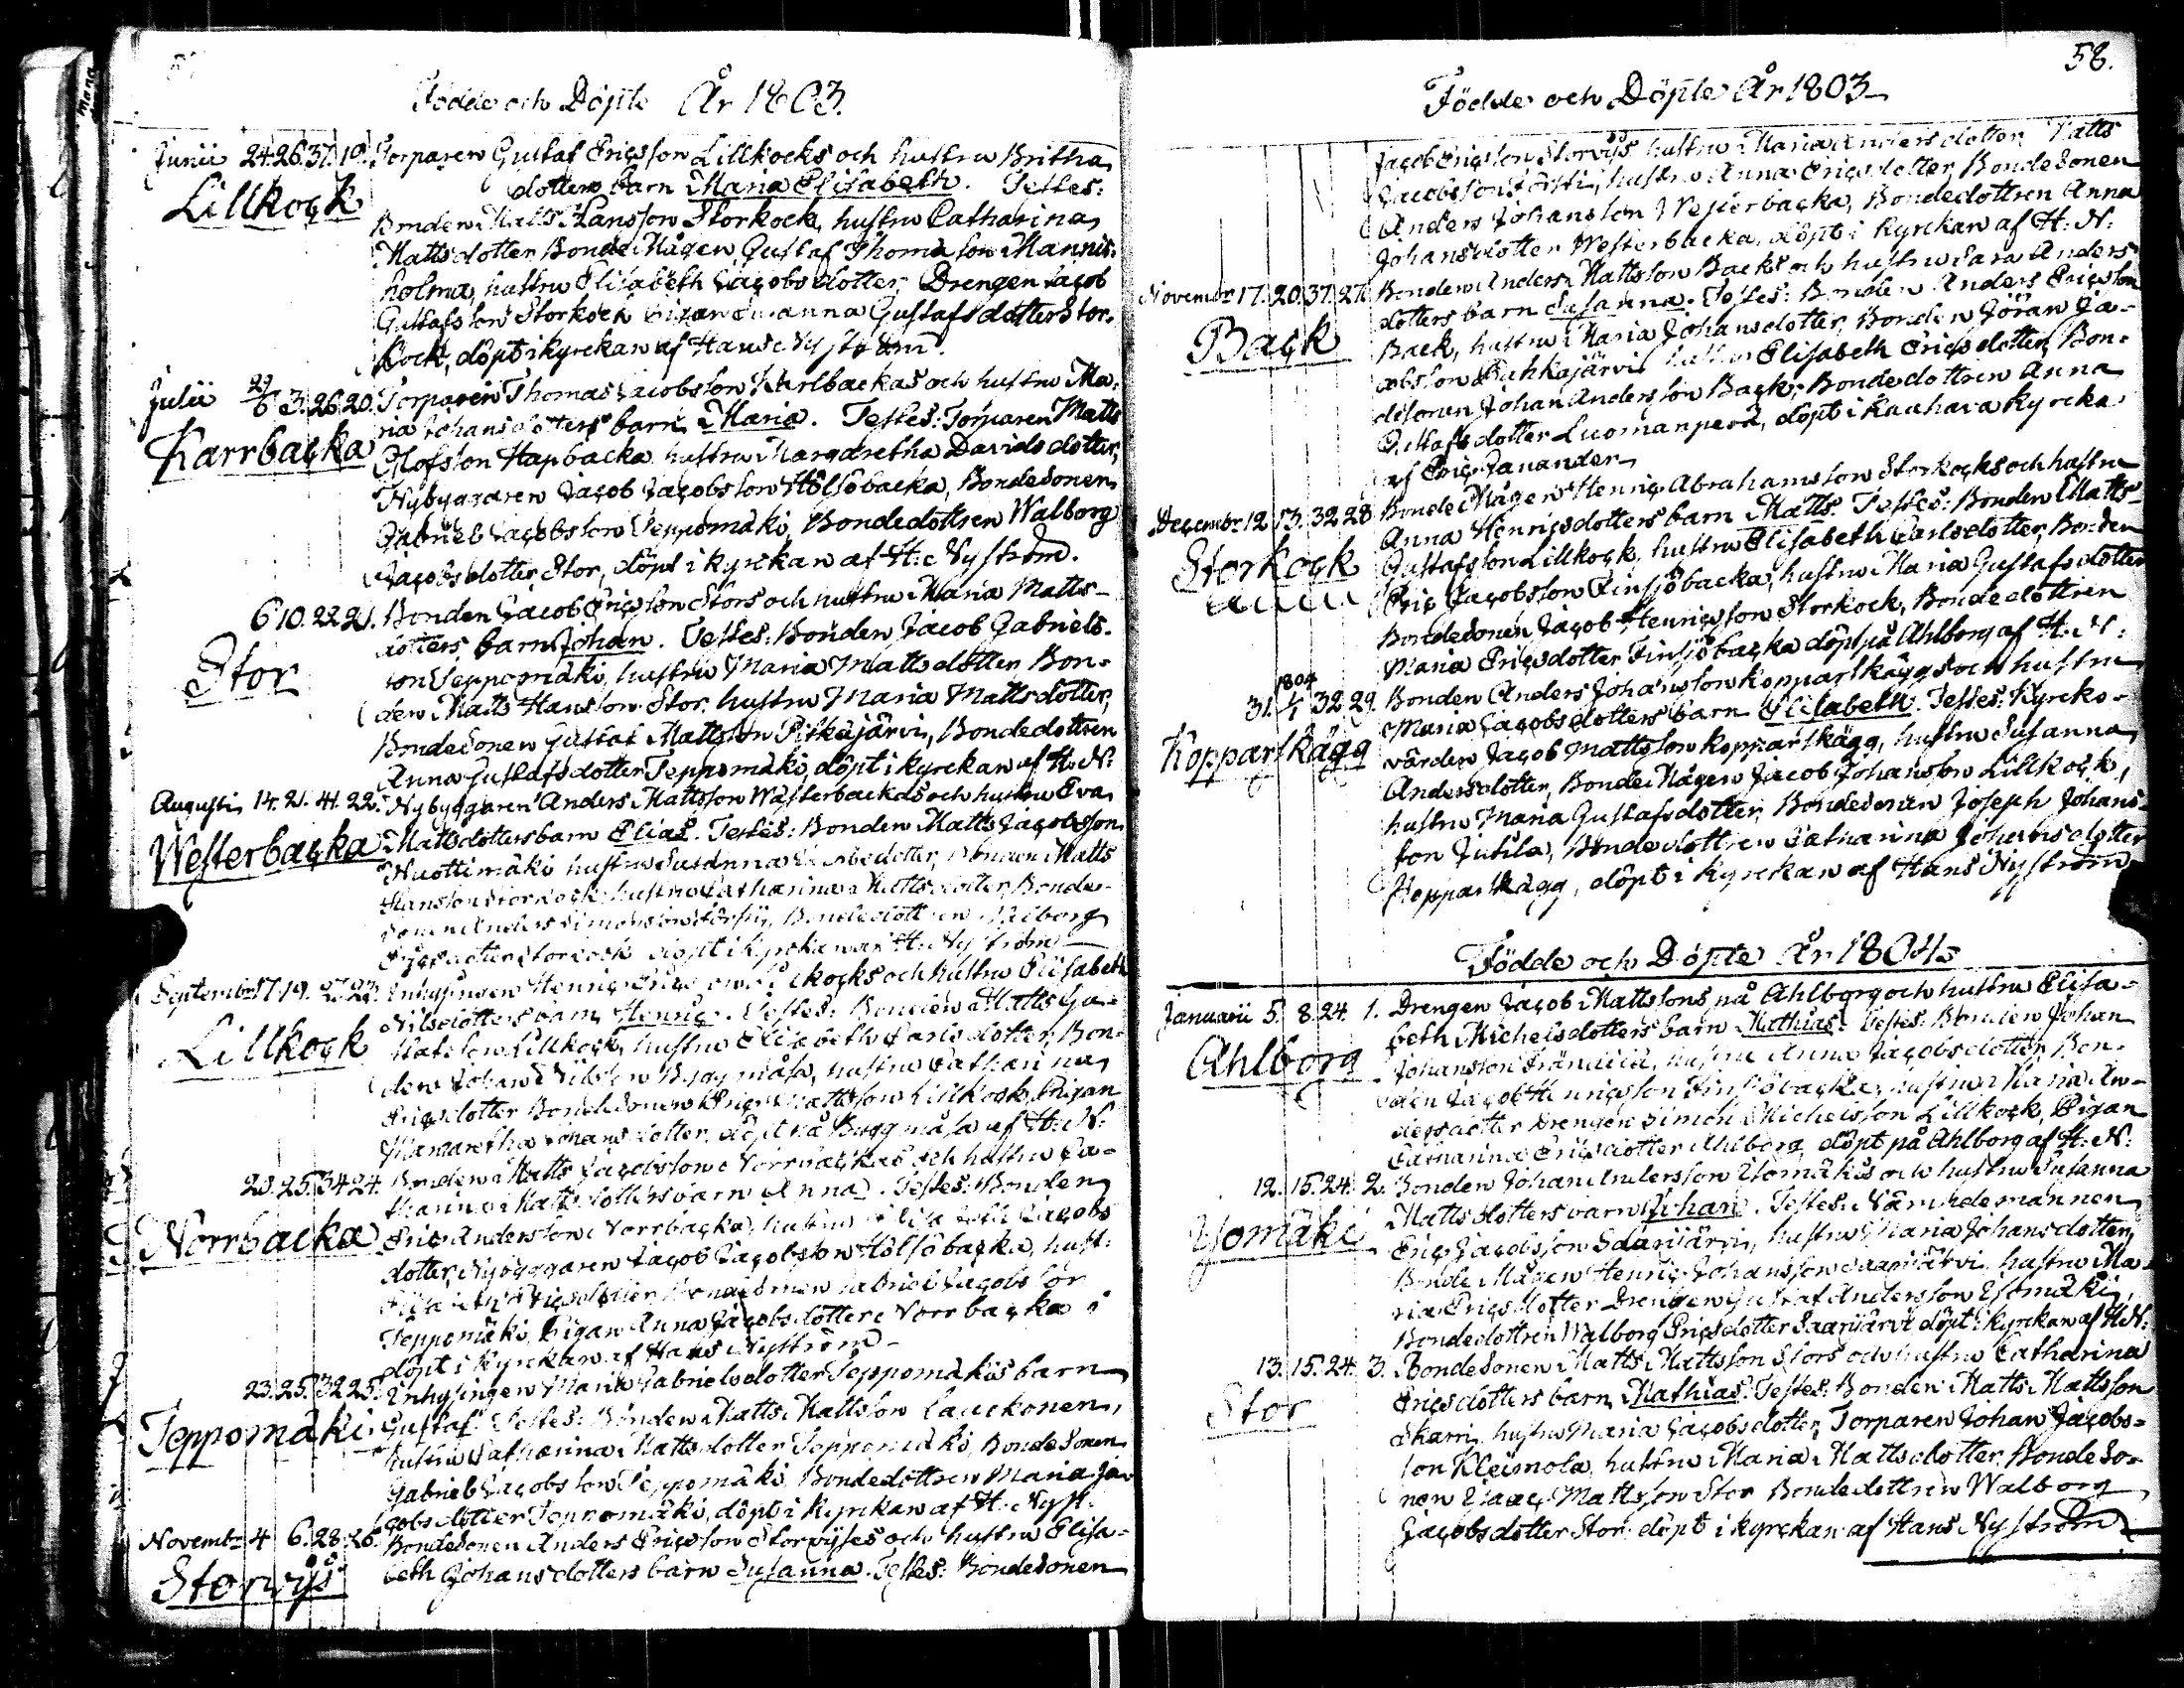 Födde och Döpte År 1803.
Junii 24. 26. 37. 19. Torparen Gustaf Ericsson Lillkocks och hustru Britha
Lillkock
dotters barn Maria Elisabeth. Testes:
Bonden Matts Hansson Storkock, hustru Catharina
Mattsdotter, Bonde Mågen Gustaf Thomasson Mannis-
holma, hustru Elisabeth Jacobsdotter, Drengen Jacob
Gustafsson Storkock Pigan Susanna Gustafsdotter Stor-
kock, döpt i kyrckan af Hans Nyström.
Julii 29/6 3. 26 20. Torparen Thomas Jacobsson Karlbackas och hustru Ma-
ria Johansdotters barn Maria. Testes: Torparen Matts
Karrbacka
Olofsson Hapbacka hustru Margaretha Davidsdotter,
Nybyggaren Jacob Jacobsson Hölsöbacka, Bondesonen
Gabriel Jacobsson Teppomäki, Bondedottren Walborg
Jacobsdotter Stor, döpt i kyrckan af H: Nyström.
6 10. 22 21. Bonden Jacob Ericsson Stors och hustru Maria Matts-
dotters barn Johan. Testes: Bonden Jacob Gabriels-
Stor
son Teppomäki, hustru Maria Mattsdotter, Bon-
den Matts Hansson Stor, hustru Maria Mattsdotter,
Bondesonen Gustaf Mattsson Pitkäjärvi, Bondedottren
Anna Gustafsdotter Teppomäki, döpt i kyrckan af H: N:
Augusti 14. 21. 41. 22. Nybyggaren Anders Mattsson Wästerbackas och hustru Eva
Westerbacka
Mattsdotters barn Elias. Testes: Bonden Matts Jacobsson
Huottimäki hustru Susanna Jacobsdotter, Bonden Matts
Hansson Storkock, hustru Catharina Mattsdotter, Bonde-
sonen Anders Simonsson Bondedottren Walborg
Ericsdotter Storkock döpt i kyrckan af H: Nyström
Septembr 17. 19. 23. Inhysingen Henric Ericssons Lillkocks och hustru Elisabeth
Nilsdotters barn Henric. Testes: Bonden Matts Gu-
Lillkock
stafsson Lillkock, hustru Elisabeth Carlsdotter, Bon-
den Johan Nilsson Byggmäsa, hustru Catharina
Ericsdotter Bondesonen Eric Mattsson Lillkock, Pigan
Margaretha Johansdotter, döpt på Byggmäsa af H: N:
23. 25. 34 24. Bonden Matts Jacobsson Norrbackas och hustru Ca-
tharina Mattsdotters barn Anna. Testes: Bonden
Norrbacka
Eric Andersson Norrbacka, hustru Elisabeth Jacobs
dotter, Nybyggaren Jacob Jacobsson Hölsöbacka, hust:
Elisabeth Ericsdotter Gabriel Jacobsson
Teppomäki, Pigan Anna Jacobsdotter Norrbacka
döpt i kyrckan af Hans Nyström
23. 25. 32 25. Inhysingen Maria Gabrielsdotter Teppomäkis barn
Teppomäki
Gustaf. Testes: Bonden Matts Mattsson Lauckonen,
hustru Catharina Mattsdotter Teppomäki, Bondesonen
Gabriel Jacobsson Teppomäki, Bondedottren Maria Ja-
cobsdotter Teppomäki, döpt i kyrckan af H: Nyst:
Novembr 4 6. 28. 26. Bondesonen Anders Ericsson Storvijses och hustru Elisa-
beth Johansdotters barn Susanna. Testes: Bondesonen
Storvijs
58.
Födde och Döpte År 1803
Jacob Ericsson Storvijs hustru Maria Andersdotter Matts
Jacobsson hustru Anna Ericsdotter, Bondesonen
Anders Johansson Westerbacka, Bondedottren Anna
Johansdotter Westerbacka, döpt i kyrckan af H: N:
Novembr. 17. 20. 37. 27. Bonden Anders Mattsson Backs och hustru Sara Anders
dotters barn Susanna. Testes: Bonden Anders Ericsson
Back
Back, hustru Maria Johansdotter, Bonden Jöran Ja-
cobsson Puhkajärvi hustru Elisabeth Ericsdotter, Bon-
desonen Johan Andersson Back, Bondedottren Anna
Gustafsdotter Luomanperä, döpt i Kauhava kyrcka
af Eric Zanander
Decembr. 12. 13. 32 28 Bonde Mågen Henric Abrahamsson Storkocks och hustru
Anna Henricsdotters barn Matts. Testes: Bonden Matts
Storkock
Gustafsson Lillkock, hustru Elisabeth Carlsdotter, Bonden
Eric Jacobsson Finsjöbacka, hustru Maria Gustafsdotter
Bondesonen Jacob Henricsson Storkock, Bondedottren
Maria Ericsdotter Finsjöbacka döpt på Ahlborg af H: N:
1804
31. 1/1 32 29. Bonden Anders Johansson Kopparskäggs och hustru
Maria Jacobsdotters barn Elisabeth. Testes: Kyrcko-
Kopparskägg
värden Jacob Mattsson Kopparskägg, hustru Susanna
Andersdotter, Bonde Mågen Jacob Johansson Lillkock,
hustru Maria Gustafsdotter, Bondesonen Joseph Johans-
son Jutila, Bondedottren Catharina Johansdotter
Kopparskägg, döpt i kyrckan af Hans Nyström
Födde och Döpte År 1804
Januarii 5. 8. 24. 1. Drengen Jacob Mattssons på Ahlborg och hustru Elisa-
beth Michelsdotters barn Mathias. Testes: Bonden Johan
Ahlborg
Johansson Frändilä, hustru Anna Jacobsdotter, Bon-
den Jacob Henricsson Finsjöbacka, hustru Maria An-
dersdotter Drengen Simon Michelsson Lillkock, Pigan
Catharina Ericsdotter Ahlborg, döpt på Ahlborg af H: N:
12. 15. 24. 2. Bonden Johan Andersson Ysomäkis och hustru Susanna
Mattsdotters barn Johan. Testes: Nämndemannen
Ysomäki
Eric Jacobsson Saarijärvi, hustru Maria Johansdotter,
Bonde Mågen Henric Johansson Saarijärvi hustru Ma-
ria Ericsdotter Drengen Gustaf Andersson Ysomäki,
Bondedottren Walborg Ericsdotter Saarijärvi döpt i kyrckan af H: N:
13. 15. 24. 3. Bondesonen Matts Mattsson Stors och hustru Catharina
Ericsdotters barn Mathias. Testes: Bonden Matts Mattsson
Stor
Skarri, hustru Maria Jacobsdotter, Torparen Johan Jacobs-
son Kleimola, hustru Maria Mattsdotter, Bondeso-
nen Isaac Mattsson Stor Bondedottren Walborg
Jacobsdotter Stor, döpt i kyrckan af Hans Nyström